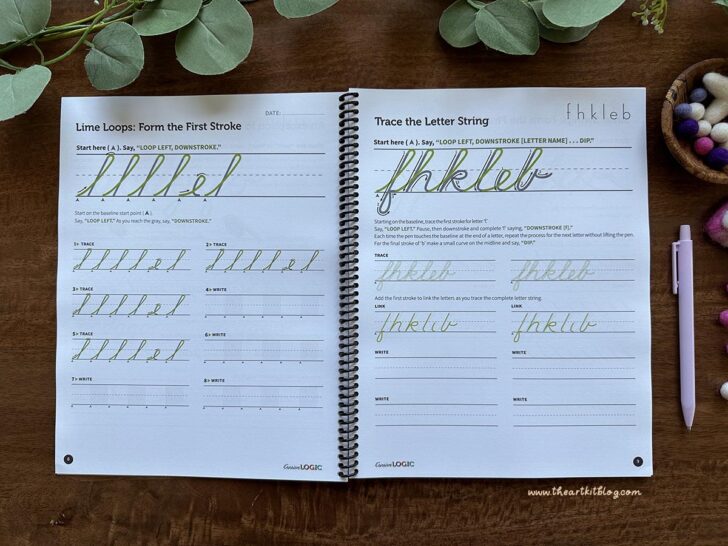 DATE:
Lime Loops: Form the First Stroke
Start here ( A ). Say, “LOOP LEFT, DOWNSTROKE.”
Start on the baseline start point ( A ).
Say, “LOOP LEFT.” As you reach the gray, say, “DOWNSTROKE.”
1> TRACE
2> TRACE
3> TRACE
4> WRITE
5> TRACE
6> WRITE
7> WRITE
8> WRITE
CursiveLOGIC
f h k l e b
Trace the Letter String
Start here ( A ). Say, “LOOP LEFT, DOWNSTROKE [LETTER NAME] . . . DIP.”
fhkleb
Starting on the baseline, trace the first stroke for letter ‘f.’
Say, “LOOP LEFT.” Pause, then downstroke and complete ‘f’ saying, “DOWNSTROKE [F].”
Each time the pen touches the baseline at the end of a letter, repeat the process for the next letter without lifting the pen.
For the final stroke of ‘b’ make a small curve on the midline and say, “DIP.”
TRACE
fhkleb fhkleb
Add the first stroke to link the letters, as you trace the complete letter string.
LINK LINK
fhkleb fhkleb
WRITE WRITE
WRITE WRITE
CursiveLOGIC
9
www.theartkitblog.com